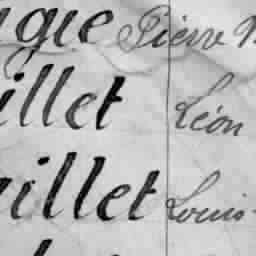 Pierre
illet Léon
illet Louis-